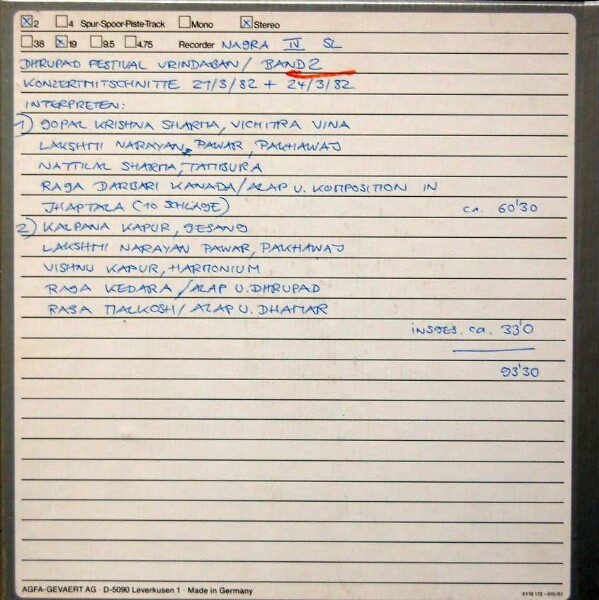 ☒2 ☐4 Spur-Spoor-Piste-Track ☐Mono ☒Stereo
☐38 ☒19 ☐9.5 ☐4.75 Recorder NAGRA IV SL
DHRUPAD FESTIVAL VRINDABAN / BAND 2
KONZERTMITSCHNITTE 21/3/82 + 24/3/82
INTERPRETEN:
1) GOPAL KRISHNA SHARMA, VICHITRA VINA
LAKSHMI NARAYAN PAWAR, PAKHAWAJ
NATTILAL SHARMA, TAMBURA
RAGA DARBARI KANADA / ALAP U. KOMPOSITION IN
JHAPTALA (10 SCHLÄGE) ca. 60'30
2) KALPANA KAPUR, GESANG
LAKSHMI NARAYAN PAWAR, PAKHAWAJ
VISHNU KAPUR, HARMONIUM
RAGA KEDARA / ALAP U. DHRUPAD
RAGA MALKOSH / ALAP U. DHAMAR
INSGES. ca. 33'0
93'30
AGFA-GEVAERT AG · D-5090 Leverkusen 1 · Made in Germany